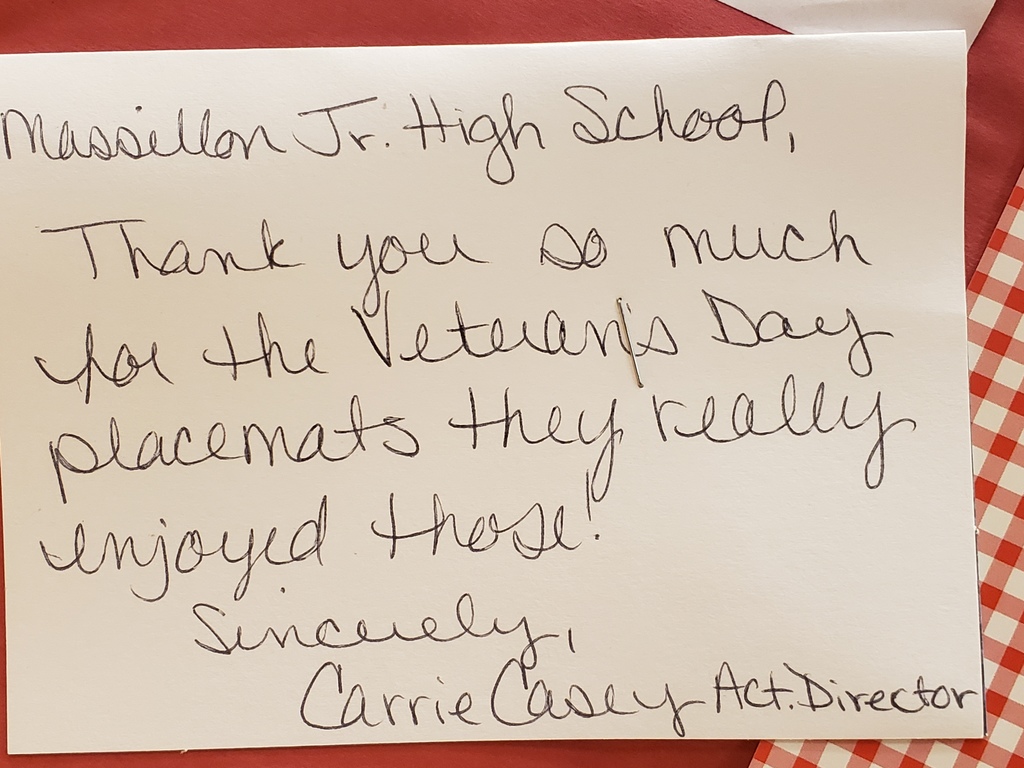 Massillon Jr. High School,
Thank you so much
for the Veteran's Day
placemats they really
enjoyed those!
Sincerely,
Carrie Casey Act. Director